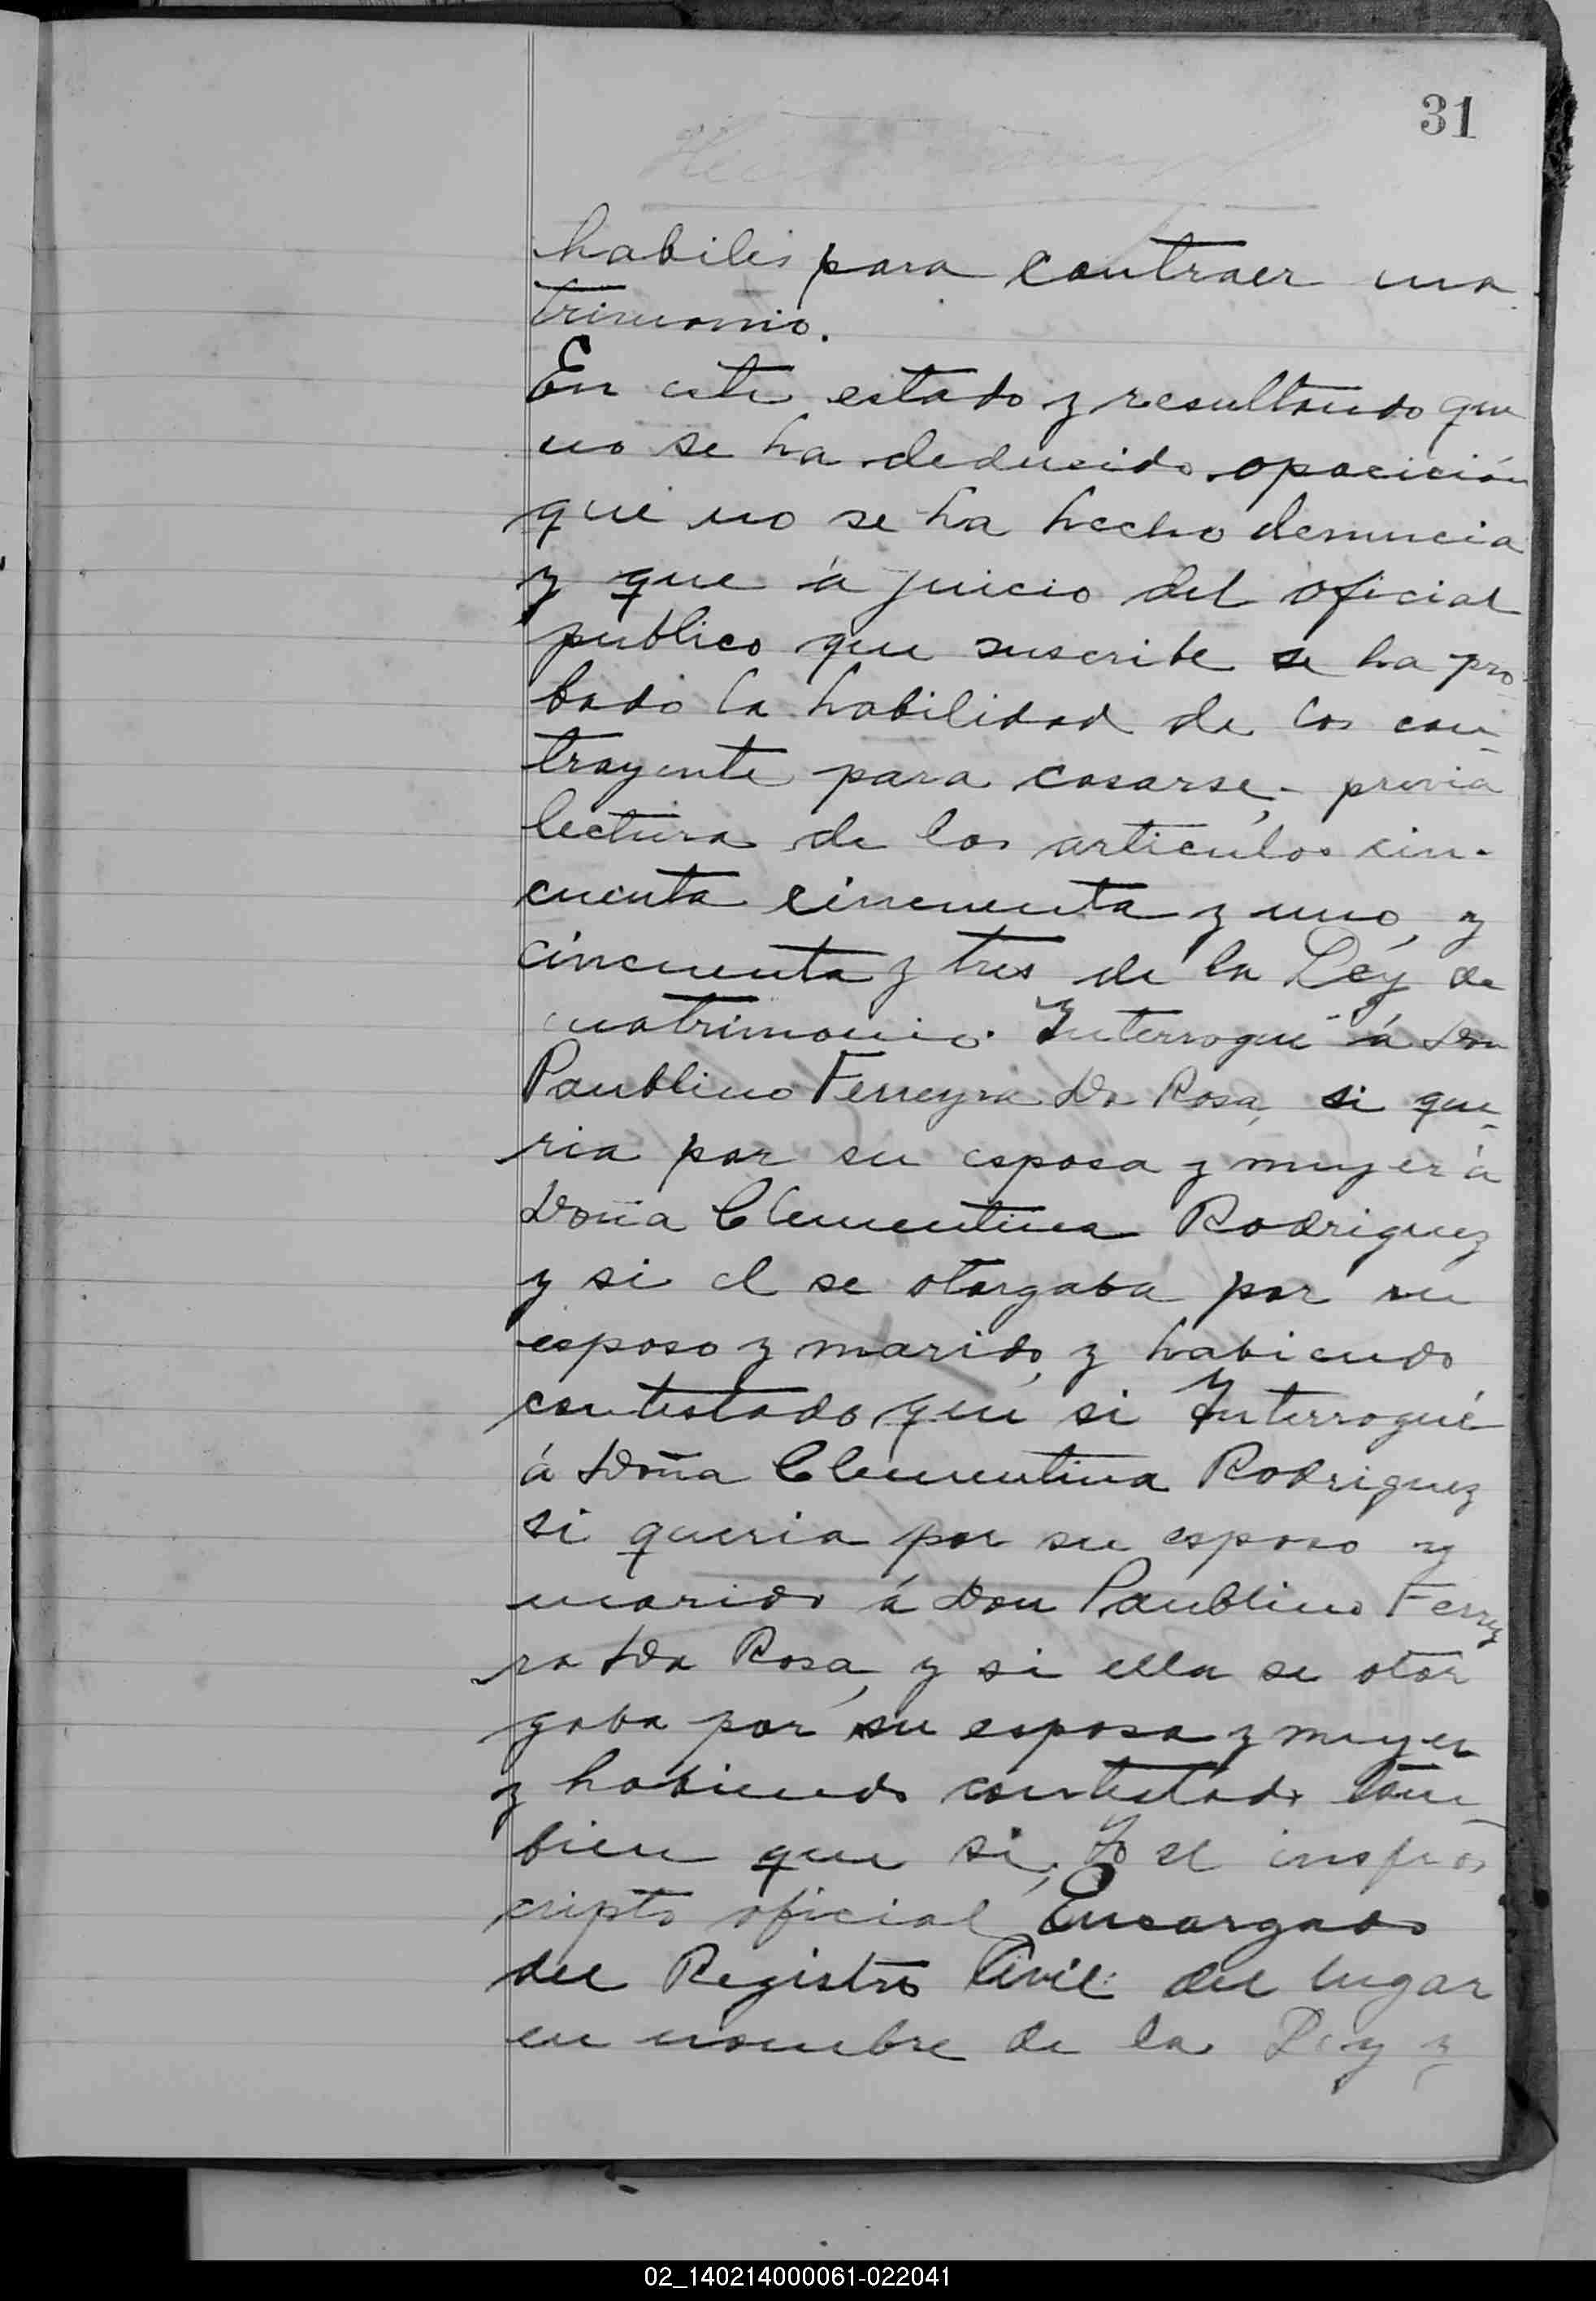 31
habiles para contraer ma
trimonio.
En este estado y resultando que
no se ha deducido opocición
que no se ha hecho denuncia
y que á juicio del oficial
publico que suscribe se ha pro-
bado la habilidad de los con-
trayente para casarse, previa
lectura de los articulos cin-
cuenta cincuenta y uno, y
cincuenta y tres de la Ley de
matrimonio. Interrogué á Don
Paublino Ferreyra Da Rosa, si que-
ria por su esposa y muyer á
Doña Clementina Rodriguez
y si el se otorgaba por su
esposo y marido, y habiendo
contestado que si Interrogué
á Doña Clementina Rodriguez
si queria por su esposo y
marido á Don Paublino Ferrey
ra Da Rosa, y si ella se otor
gaba por su esposa y muyer
y habiendo contestado tam-
bien que si, Yo el insfras
cripto oficial Encargado
del Registro Civil del lugar
en nombre de la Ley y
02_140214000061-022041